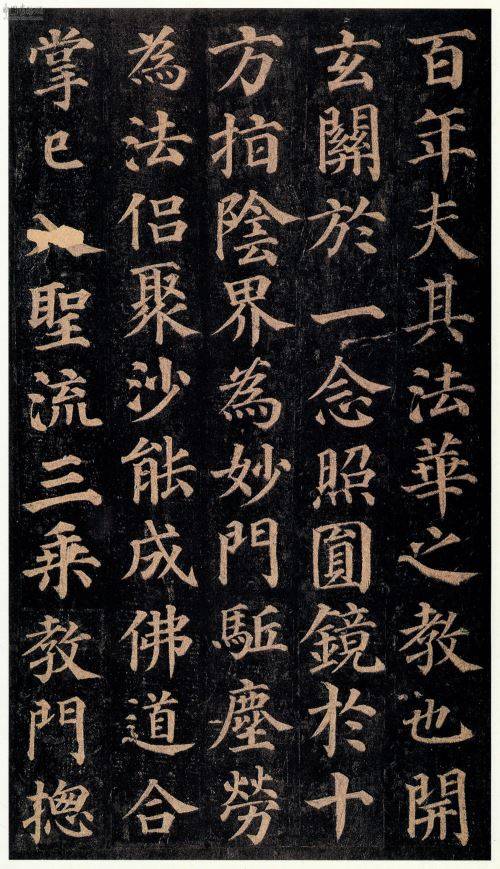 百年夫其法華之教也開
玄關於一念照圓鏡於十
方指陰界為妙門駈塵勞
為法侶聚沙能成佛道合
掌已入聖流三乘教門揔